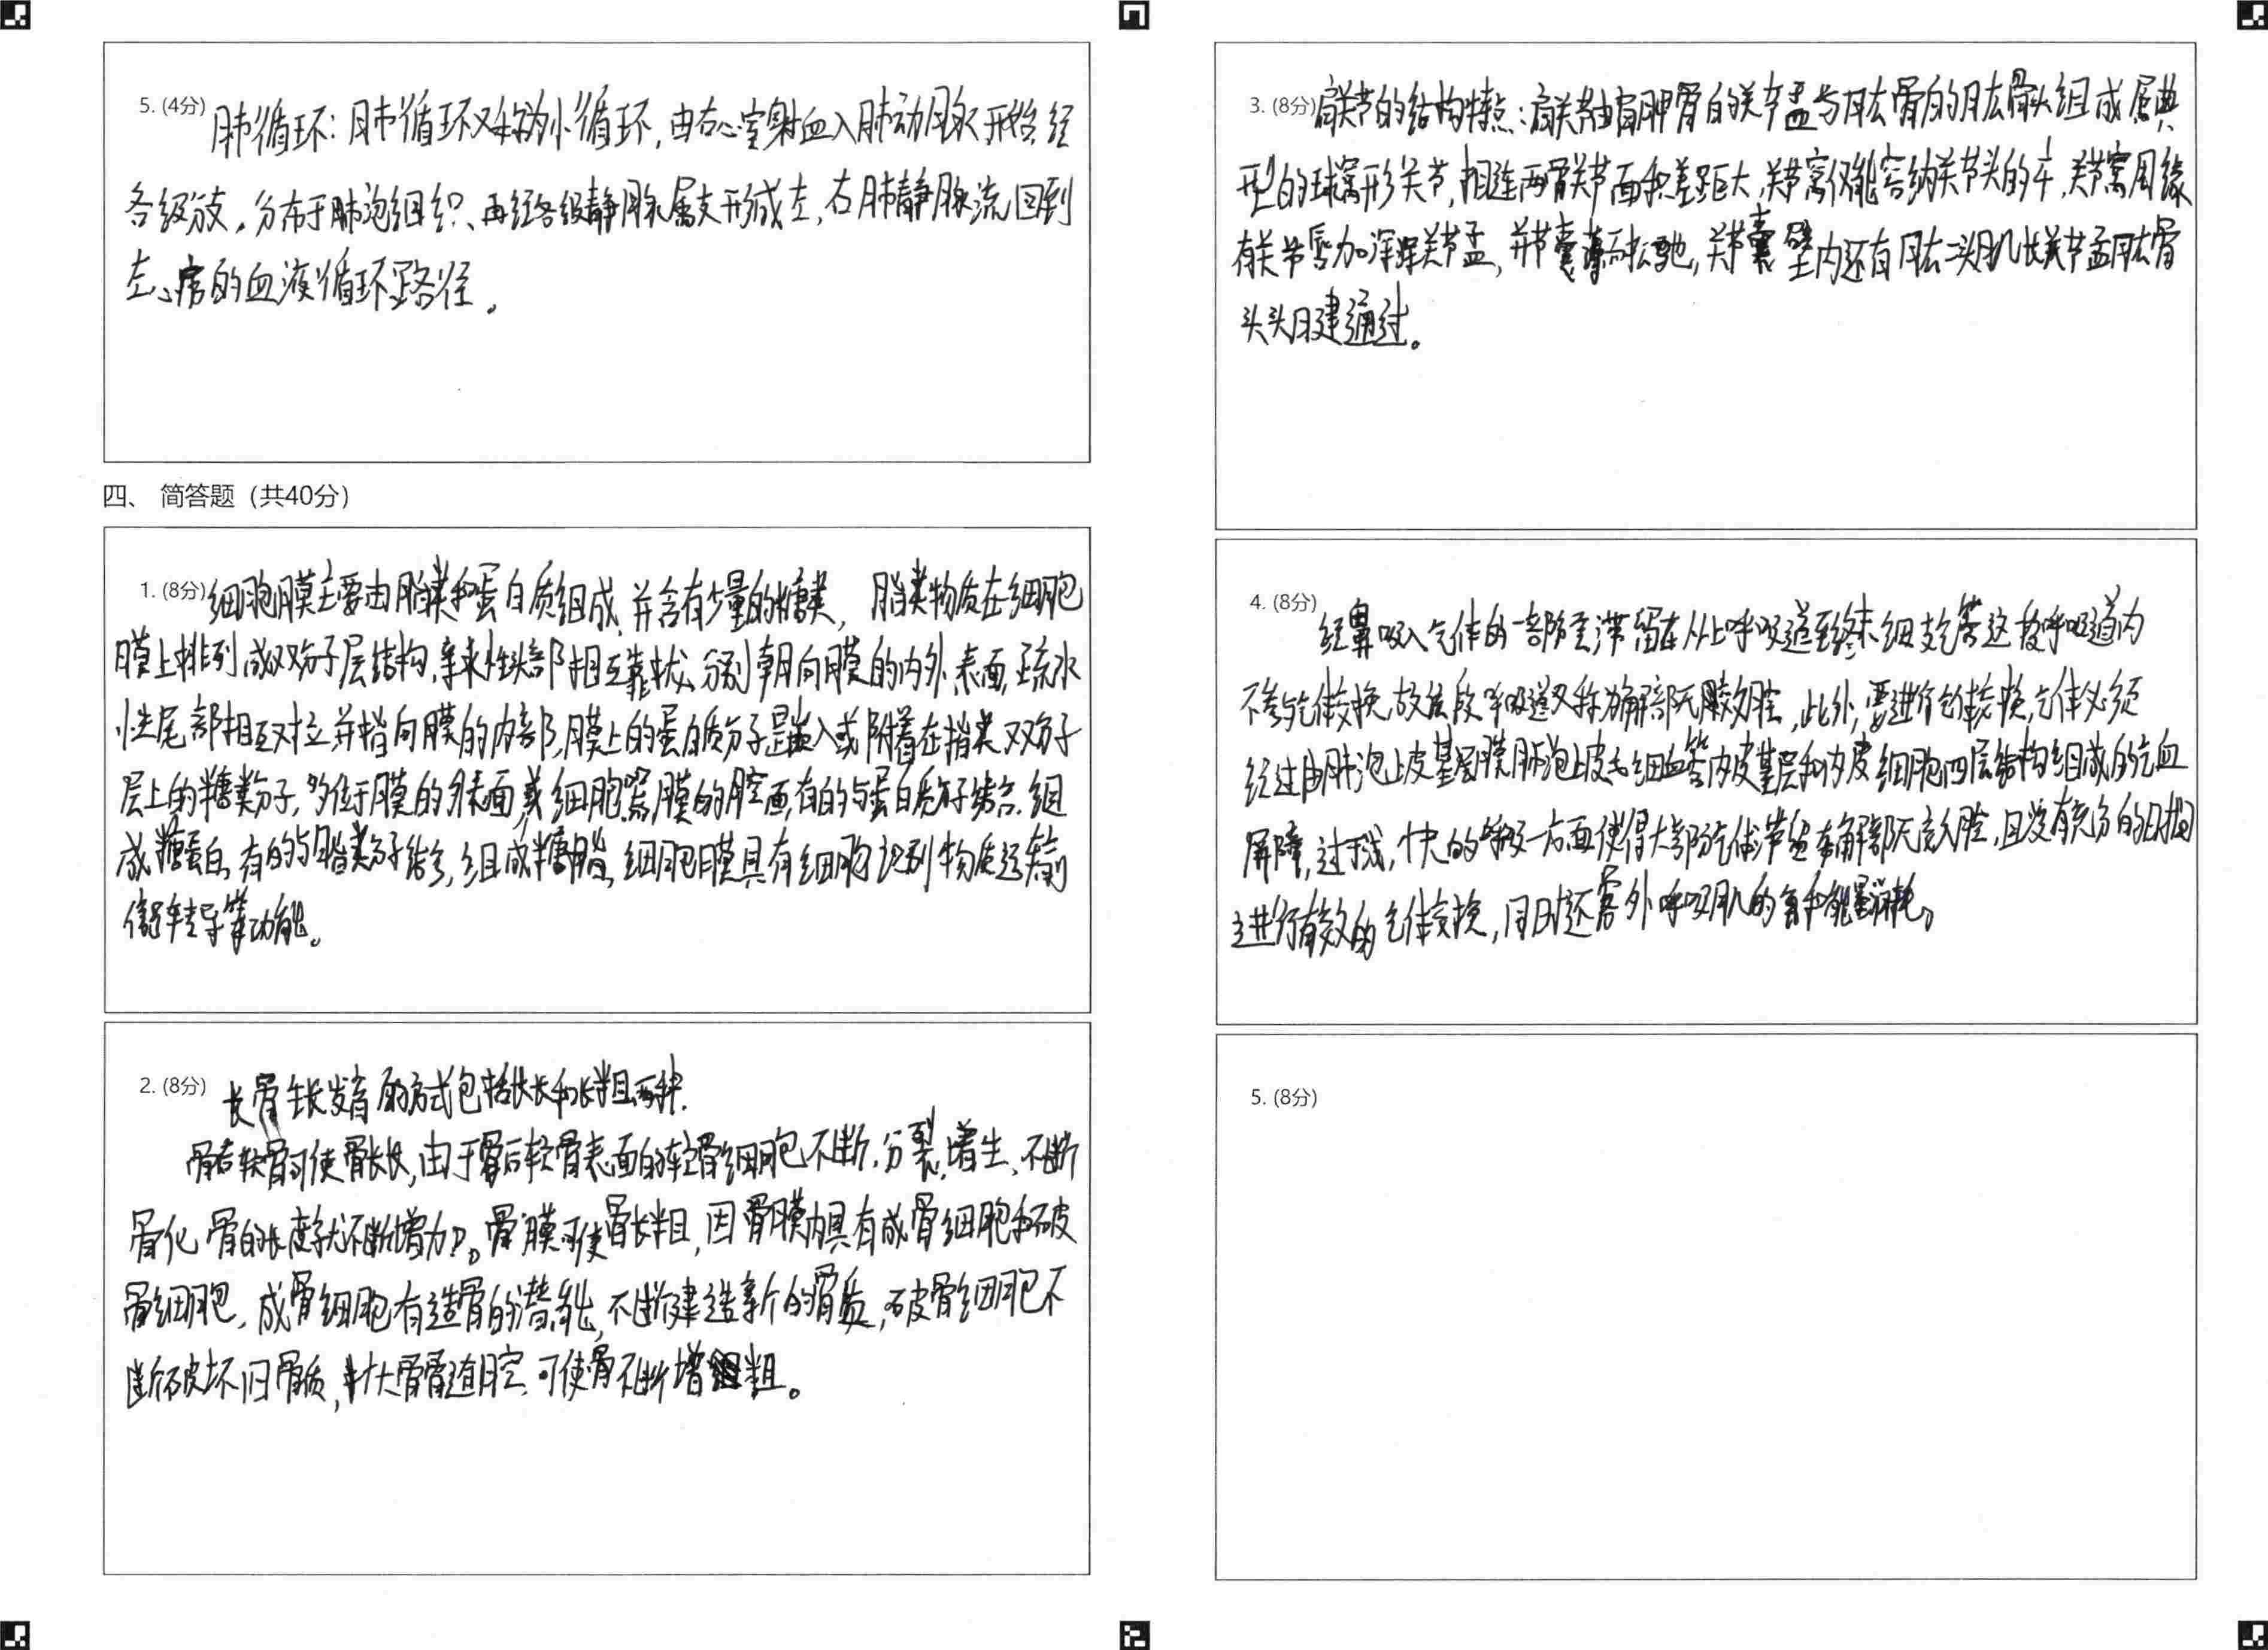 5. (4分) 肺循环：肺循环又称为小循环，由右心室射血入肺动脉开始，经
各级分支，分布于肺泡组织、再经各级静脉属支形成左，右肺静脉流回到
左心房的血液循环路径。
四、 简答题（共40分）
1. (8分) 细胞膜主要由脂类和蛋白质组成，并含有少量的糖类，脂类物质在细胞
膜上排列成双分子层结构，亲水性头部相互靠拢、分别朝向膜的内外表面，疏水
性尾部相互对拉并指向膜的内部，膜上的蛋白质分子是嵌入或附着在脂类双分子
层上的糖类分子，多位于膜的外表面或细胞器膜的腔面，有的与蛋白质分子结合，组
成糖蛋白，有的与脂类分子结合，组成糖脂，细胞膜具有细胞识别物质运输
信号转导等功能。
2. (8分) 长骨生长发育的方式包括长长和长粗两种.
骨后软骨可使骨长长，由于骨后软骨表面的软骨细胞不断分裂，增生、不断
骨化 骨的长度就不断增加。骨膜可使骨长粗，因骨膜内具有成骨细胞和破
骨细胞，成骨细胞有造骨的潜能，不断建造新的骨质，破骨细胞不
断破坏旧骨质，扩大骨髓腔，可使骨不断增粗。
3. (8分) 肩关节的结构特点：肩关节由肩胛骨的关节盂与肱骨的肱骨头组成属典
型的球窝形关节，相连两骨关节面积差距大，关节窝仅能容纳关节头的，关节窝周缘
有关节唇加深关节盂，关节囊薄而松弛，关节囊壁内还有肱二头肌长关节盂肱骨
头头腱通过。
4. (8分) 经鼻吸入气体的一部分重滞留在从上呼吸道至终末细支气管这段呼吸道内
不参与气体交换，故此段呼吸道又称为解剖无腔，此外，要进行气体交换，气体必须
经过由肺泡上皮基层膜肺泡上皮毛细血管内皮基层和内皮细胞四层结构组成的气血
屏障，过于浅，快的呼吸一方面使得大部分气体滞留在解剖无腔，且没有充分的时间
进行有效的气体交换，同时还需外呼吸肌的能量消耗。
5. (8分)